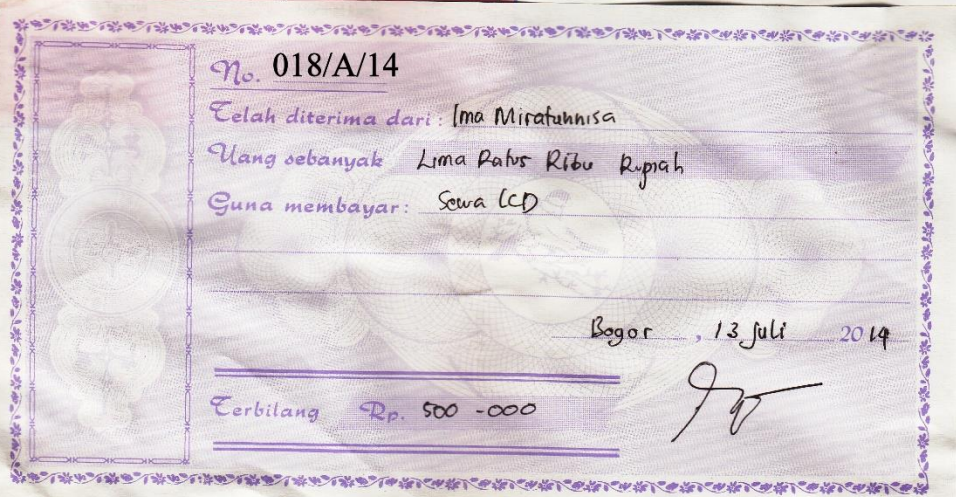 No. 018/A/14
Telah diterima dari : Ima Miratunnisa
Uang sebanyak Lima Ratus Ribu Rupiah
Guna membayar : Sewa LCD
Bogor , 13 Juli 2014
Terbilang Rp. 500 -000